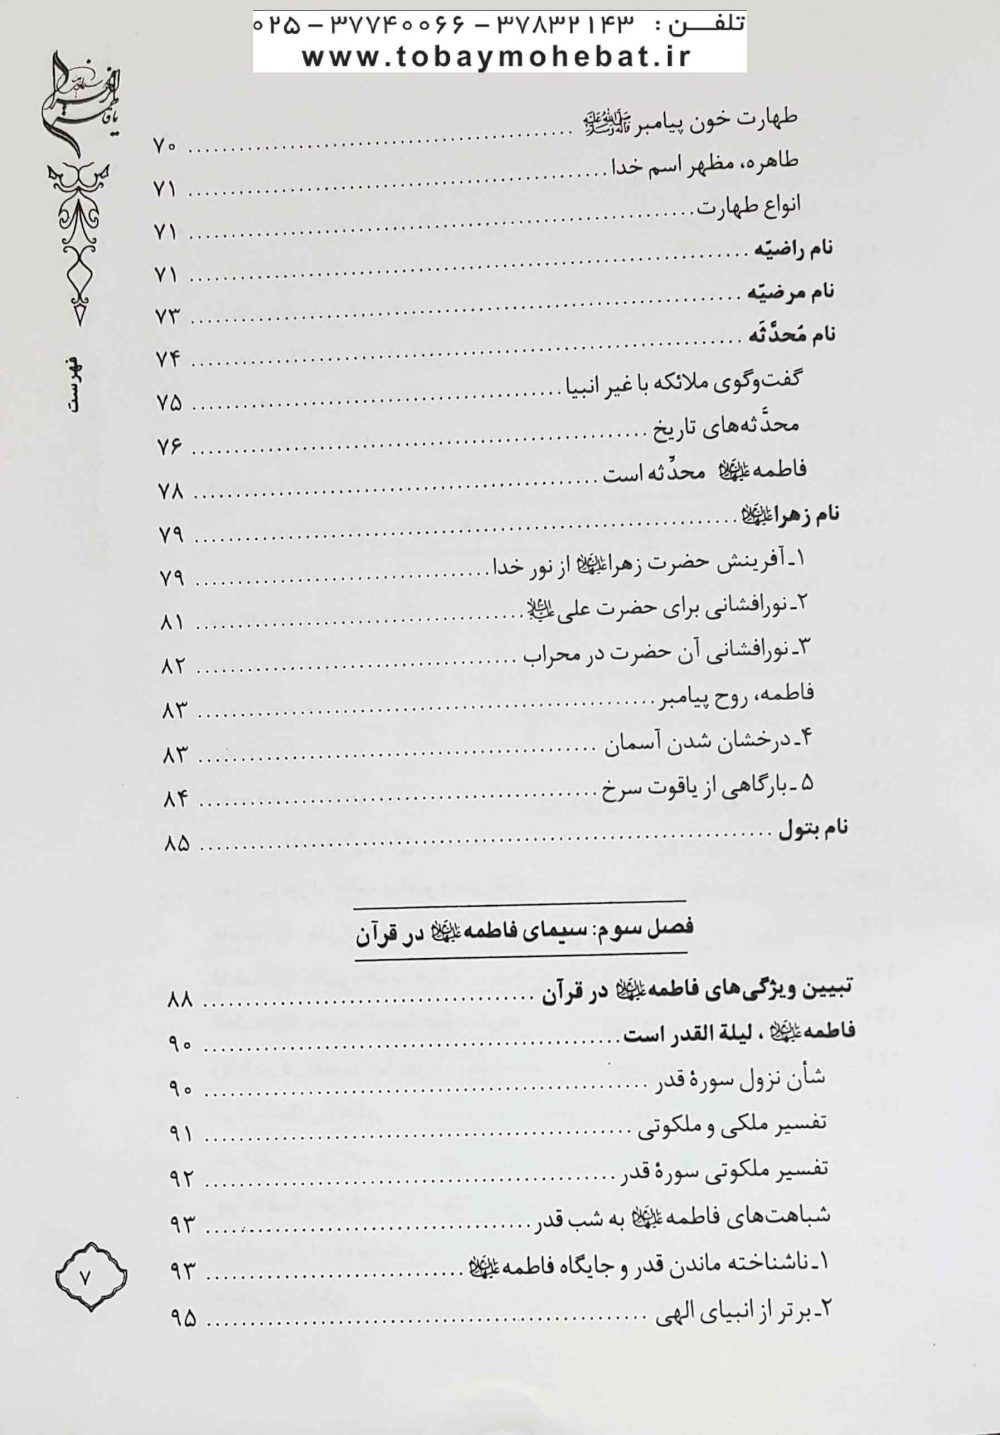 تلفـــن : ۳۷۸۳۲۱۴۳ – ۳۷۷۴۰۰۶۶ – ۰۲۵
www.tobaymohebat.ir
طهارت خون پیامبر ﷺ ۷۰
طاهره، مظهر اسم خدا ۷۱
انواع طهارت ۷۱
نام راضیّه ۷۱
نام مرضیّه ۷۳
نام مُحدَّثَه ۷۴
گفت‌وگوی ملائکه با غیر انبیا ۷۵
محدَّثه‌های تاریخ ۷۶
فاطمه علیها السلام محدّثه است ۷۸
نام زهرا علیها السلام ۷۹
۱ـ آفرینش حضرت زهرا علیها السلام از نور خدا ۷۹
۲ـ نورافشانی برای حضرت علی علیه السلام ۸۱
۳ـ نورافشانی آن حضرت در محراب ۸۲
فاطمه، روح پیامبر ۸۳
۴ـ درخشان شدن آسمان ۸۳
۵ ـ بارگاهی از یاقوت سرخ ۸۴
نام بتول ۸۵
فصل سوم: سیمای فاطمه علیها السلام در قرآن
تبیین ویژگی‌های فاطمه علیها السلام در قرآن ۸۸
فاطمه علیها السلام ، لیلة القدر است ۹۰
شأن نزول سورهٔ قدر ۹۰
تفسیر ملکی و ملکوتی ۹۱
تفسیر ملکوتی سورهٔ قدر ۹۲
شباهت‌های فاطمه علیها السلام به شب قدر ۹۳
۱ـ ناشناخته ماندن قدر و جایگاه فاطمه علیها السلام ۹۳
۲ـ برتر از انبیای الهی ۹۵
فهرست
۷